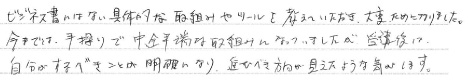 ビジネス書にはない具体的な取組みやツールを教えていただき、大変ためになりました。
今までは、手探りで中途半端な取組みになっていましたが受講後は、
自分がするべきことが明確になり、進むべき方向が見えたような気がします。